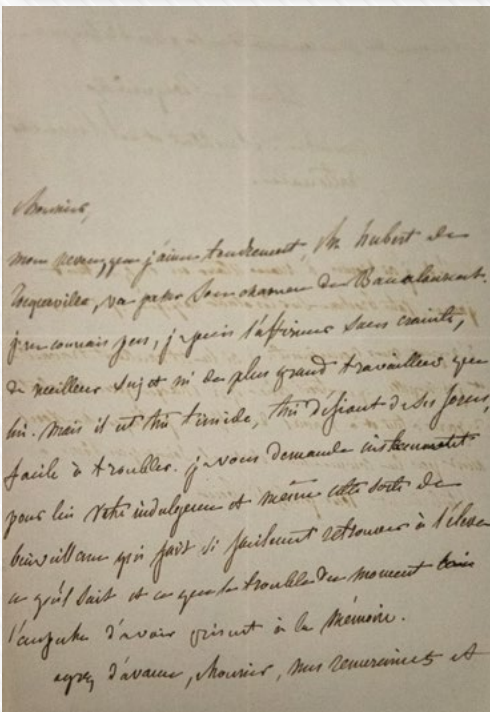 Monsieur,
mon neveu, que j'aime tendrement, Mr hubert de
Tocqueville, va passer son examen de Baccalauréat.
je ne connais pas, je puis l'affirmer sans crainte,
de meilleur sujet ni de plus grand travailleur que
lui. Mais il est très timide, très défiant de ses forces,
facile à troubler. je vous demande instamment
pour lui votre indulgence et même cette sorte de
bienveillance qui fait si facilement retrouver à l'élève
ce qu'il sait et ce que le trouble du moment
d'avoir présent à la mémoire.
agréez d'avance, Monsieur, mes remerciments et